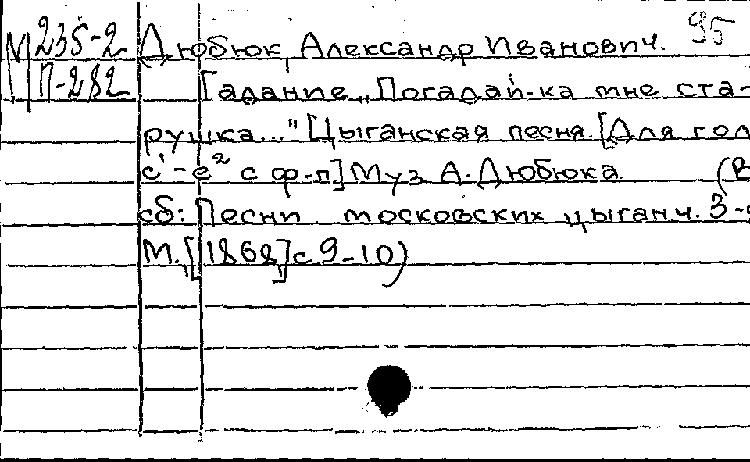 М 235-2 Дюбюк, Александр Иванович. 95
П-282 Гадание „Погадай-ка мне ста-
рушка..." Цыганская песня. [Для гол
c¹-e² с ф-п] Муз А. Дюбюка. (В
сб: Песни московских цыган ч. 3-
М., [1868] с 9-10)